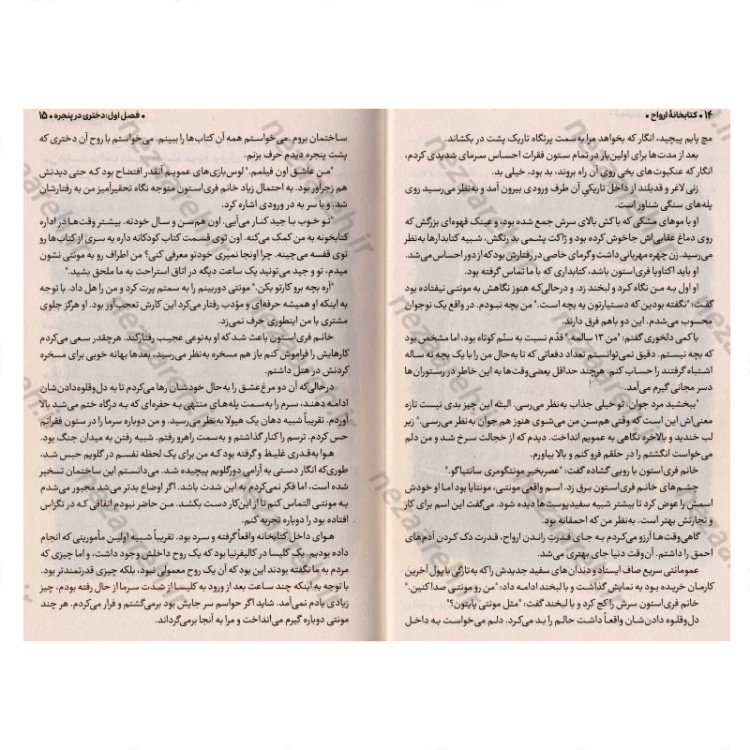 ۱۴ • کتابخانهٔ ارواح •
مچ پایم پیچید، انگار که بخواهد مرا به سمت پرتگاه تاریک پشت در بکشاند.
بعد از مدت‌ها برای اولین‌بار در تمام ستون فقرات احساس سرمای شدیدی کردم،
انگار که عنکبوت‌های یخی روی آن راه بروند، بد بود، خیلی بد.
زنی لاغر و قدبلند از داخل تاریکی آن طرف ورودی بیرون آمد و به‌نظر می‌رسید روی
پله‌های سنگی شناور است.
او با موهای مشکی که با کش بالای سرش جمع شده بود، و عینک قهوه‌ای بزرگش که
روی دماغ عقابی‌اش جاخوش کرده بود و ژاکت پشمی بد رنگش، شبیه کتابدارها به‌نظر
می‌رسید. زن چهره مهربانی داشت و گرمای خاصی در رفتارش بود که از دور احساس می‌شد.
او باید اکتاویا فری‌استون باشد، کتابداری که با ما تماس گرفته بود.
او اول به من نگاه کرد و لبخند زد. و درحالی‌که هنوز نگاهش به مونتی نیفتاده بود
گفت: "نگفته بودین که دستیارتون یه بچه است." من بچه نبودم. در واقع یک نوجوان
محسوب می‌شدم. این دو باهم فرق دارند.
با کمی دلخوری گفتم: "من ۱۳ سالمه." قدّم نسبت به سنّم کوتاه بود، اما مشخص بود
که بچه نیستم. دقیق نمی‌توانستم تعداد دفعاتی که تا به‌حال من را با یک بچه نه ساله
اشتباه گرفتند را حساب کنم. هرچند حداقل بعضی‌وقت‌ها به این خاطر در رستوران‌ها
دسر مجانی گیرم می‌آمد.
"ببخشید مرد جوان، تو خیلی جذاب به‌نظر می‌رسی. البته این چیز بدی نیست تازه
معنی‌اش این است که وقتی هم‌سن من می‌شوی هنوز هم جوان به‌نظر می‌رسی." زیر
لب خندید و بالاخره نگاهی به عمویم انداخت. دیدم که از خجالت سرخ شد و من دلم
می‌خواست انگشتم را در حلقم فرو کنم و بالا بیاورم.
خانم فری‌استون با رویی گشاده گفت: "عصربخیر مونتگومری سانتیاگو."
چشم‌های خانم فری‌استون برق زد. اسم واقعی مونتی، مونتایا بود اما او خودش
اسمش را عوض کرد تا بیشتر شبیه سفیدپوست‌ها دیده شود. می‌گفت این اسم برای کار
و تجارتش بهتر است. به‌نظر من که احمقانه بود.
گاهی‌وقت‌ها آرزو می‌کردم به جای قدرت راندن ارواح، قدرت دک کردن آدم‌های
احمق را داشتم. آن‌وقت دنیا جای بهتری می‌شد.
عمومانتی سریع صاف ایستاد و دندان‌های سفید جدیدش را که به‌تازگی با پول آخرین
کارمان خریده بود به نمایش گذاشت و با لبخند ادامه داد: "من رو مونتی صدا کنین."
خانم فری‌استون سرش را کج کرد و با لبخند گفت: "مثل مونتی پایتون؟"
دل‌وقلوه دادن‌شان واقعاً داشت حالم را بد می‌کرد. دلم می‌خواست به داخل
• فصل اول: دختری در پنجره • ۱۵
ساختمان بروم. می‌خواستم همه آن کتاب‌ها را ببینم. می‌خواستم با روح آن دختری که
پشت پنجره دیدم حرف بزنم.
"من عاشق اون فیلمم." لوس‌بازی‌های عمویم آنقدر افتضاح بود که حتی دیدنش
هم زجرآور بود. به احتمال زیاد خانم فری‌استون متوجه نگاه تحقیرآمیز من به رفتارشان
شد. و با سر به در ورودی اشاره کرد.
"تو خوب با جید کنار می‌آیی. اون هم‌سن و سال خودته. بیشتر وقت‌ها در اداره
کتابخونه به من کمک می‌کنه. اون توی قسمت کتاب کودکانه داره یه سری از کتاب‌ها رو
توی قفسه می‌چینه. چرا اونجا نمیری خودتو معرفی کنی؟ من اطراف رو به مونتی نشون
میدم، تو و جید می‌تونید یک ساعت دیگه در اتاق استراحت به ما ملحق بشید."
"آره بچه برو کارتو بکن." مونتی دوربینم را به سمتم پرت کرد و من را هل داد. با توجه
به اینکه او همیشه حرفه‌ای و مؤدب رفتار می‌کرد این کارش تعجب‌آور بود. او هرگز جلوی
مشتری با من اینطوری حرف نمی‌زد.
خانم فری‌استون باعث شد که او به‌نوعی عجیب رفتار کند. هرچقدر سعی می‌کردم
کارهایش را فراموش کنم باز هم مسخره به‌نظر می‌رسید، بعدها بهانه خوبی برای مسخره
کردنش در هتل داشتم.
درحالی‌که آن دو مرغ‌عشق را به‌حال خودشان رها می‌کردم تا به دل‌وقلوه‌دادن‌شان
ادامه دهند، سرم را به‌سمت پله‌های منتهی به حفره‌ای که به درگاه ختم می‌شد بالا
آوردم. تقریباً شبیه دهان یک هیولا به‌نظر می‌رسید. و من دوباره سرما را در ستون فقراتم
حس کردم. ترسم را کنار گذاشتم و به‌سمت راهرو رفتم. شبیه رفتن به میدان جنگ بود.
هوا به‌قدری غلیظ و گرفته بود که من برای یک لحظه نفسم در گلویم حبس شد،
طوری‌که انگار دستی به آرامی دور گلویم پیچیده شد. می‌دانستم این ساختمان تسخیر
شده است، اما فکر نمی‌کردم به این شدت باشد. اگر اوضاع بدتر می‌شد مجبور می‌شدم
به مونتی التماس کنم تا از این‌کار دست بکشد. من حاضر نبودم اتفاقی که در تگزاس
افتاده بود را دوباره تجربه کنم.
هوای داخل کتابخانه واقعاً گرفته و سرد بود. تقریباً شبیه اولین مأموریتی که انجام
داده بودیم. یک کلیسا در کالیفرنیا بود که یک روح داخلش وجود داشت، و اما چیزی که
مردم به ما نگفته بودند این بود که آن یک روح معمولی نبود، بلکه چیزی قدرتمندتر بود.
با توجه به اینکه چند ساعت بعد از ورود به کلیسا از شدت سرما از حال رفته بودم، چیز
زیادی یادم نمی‌آمد. شاید اگر حواسم سر جایش بود برمی‌گشتم و فرار می‌کردم. هر چند
مونتی دوباره گیرم می‌انداخت و مرا به آنجا برمی‌گرداند.
nezareh.ir